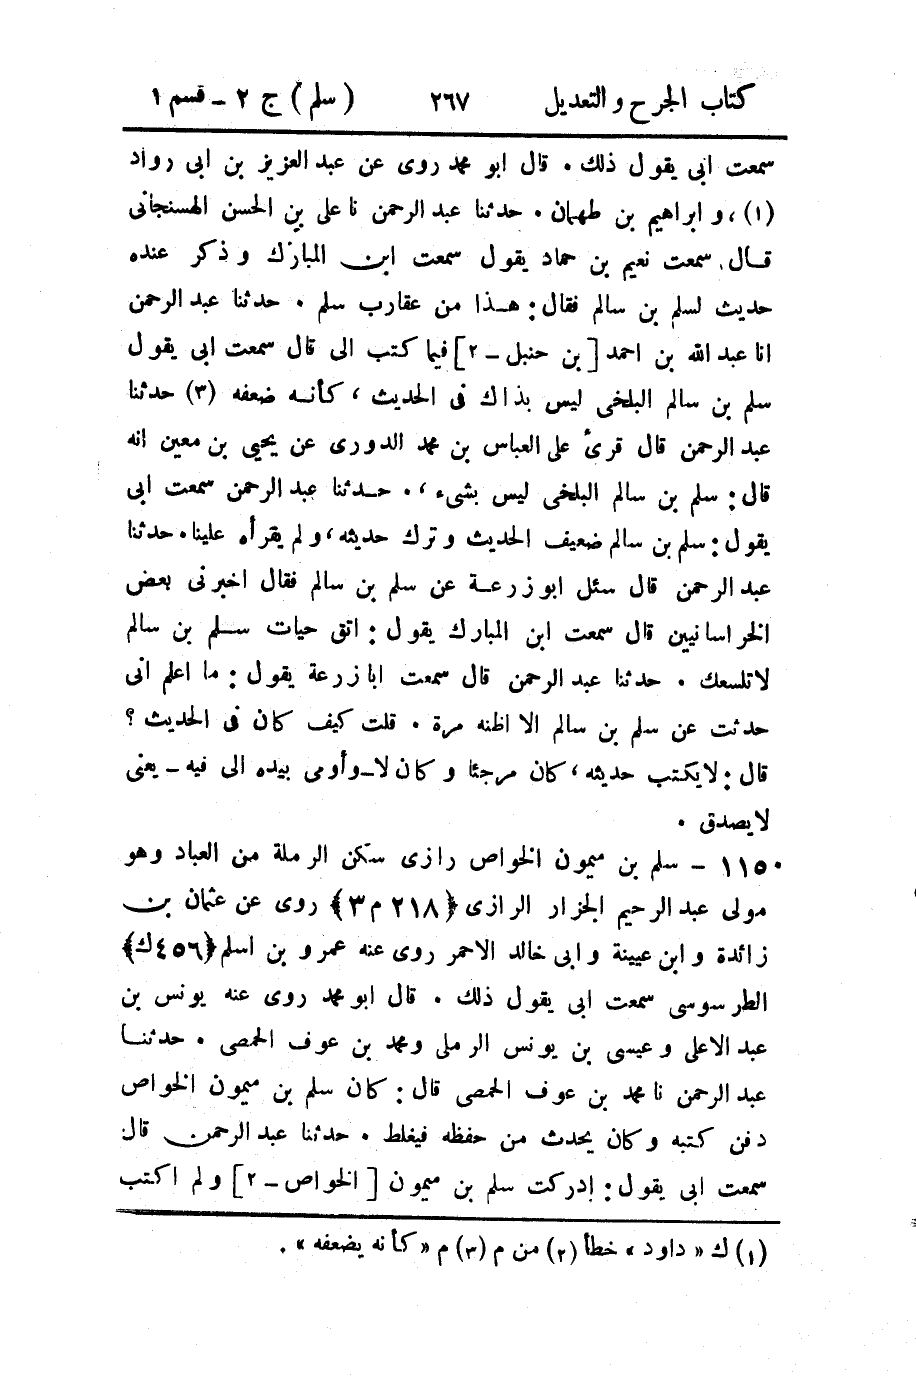 كتاب الجرح والتعديل ٢٦٧ (سلم) ج ٢ - قسم ١
سمعت ابى يقول ذلك . قال ابو محمد روى عن عبد العزيز بن ابى رواد
(١) ، و ابراهيم بن طهمان . حدثنا عبد الرحمن نا على بن الحسن الهسنجانى
قال سمعت نعيم بن حماد يقول سمعت ابن المبارك و ذكر عنده
حديث لسلم بن سالم فقال : هذا من عقارب سلم . حدثنا عبد الرحمن
انا عبد الله بن احمد [بن حنبل - ٢] فيما كتب الى قال سمعت ابى يقول
سلم بن سالم البلخى ليس بذاك فى الحديث ، كأنه ضعفه (٣) حدثنا
عبد الرحمن قال قرئ على العباس بن محمد الدورى عن يحيى بن معين انه
قال : سلم بن سالم البلخى ليس بشىء ، . حدثنا عبد الرحمن سمعت ابى
يقول : سلم بن سالم ضعيف الحديث و ترك حديثه ، و لم يقرأه علينا . حدثنا
عبد الرحمن قال سئل ابو زرعة عن سلم بن سالم فقال اخبرنى بعض
الخراسانيين قال سمعت ابن المبارك يقول : اتق حيات سلم بن سالم
لاتلسعك . حدثنا عبد الرحمن قال سمعت ابا زرعة يقول : ما اعلم انى
حدثت عن سلم بن سالم الا اظنه مرة . قلت كيف كان فى الحديث ؟
قال : لا يكتب حديثه ، كان مرجئا و كان لا - وأومى بيده الى فيه - يعنى
لا يصدق .
١١٥٠ - سلم بن ميمون الخواص رازى سكن الرملة من العباد وهو
مولى عبد الرحيم الجزار الرازى ﴿٢١٨ م ٣﴾ روى عن عثمان بن
زائدة و ابن عيينة و ابى خالد الاحمر روى عنه عمرو بن اسلم ﴿٤٥٦ ك﴾
الطرسوسى سمعت ابى يقول ذلك . قال ابو محمد روى عنه يونس بن
عبد الاعلى و عيسى بن يونس الرملى ومحمد بن عوف الحمصى . حدثنا
عبد الرحمن نا محمد بن عوف الحمصى قال : كان سلم بن ميمون الخواص
دفن كتبه و كان يحدث من حفظه فيغلط . حدثنا عبد الرحمن قال
سمعت ابى يقول : ادركت سلم بن ميمون [الخواص - ٢] و لم اكتب
(١) ك « داود » خطأ (٢) من م (٣) م « كأنه يضعفه » .